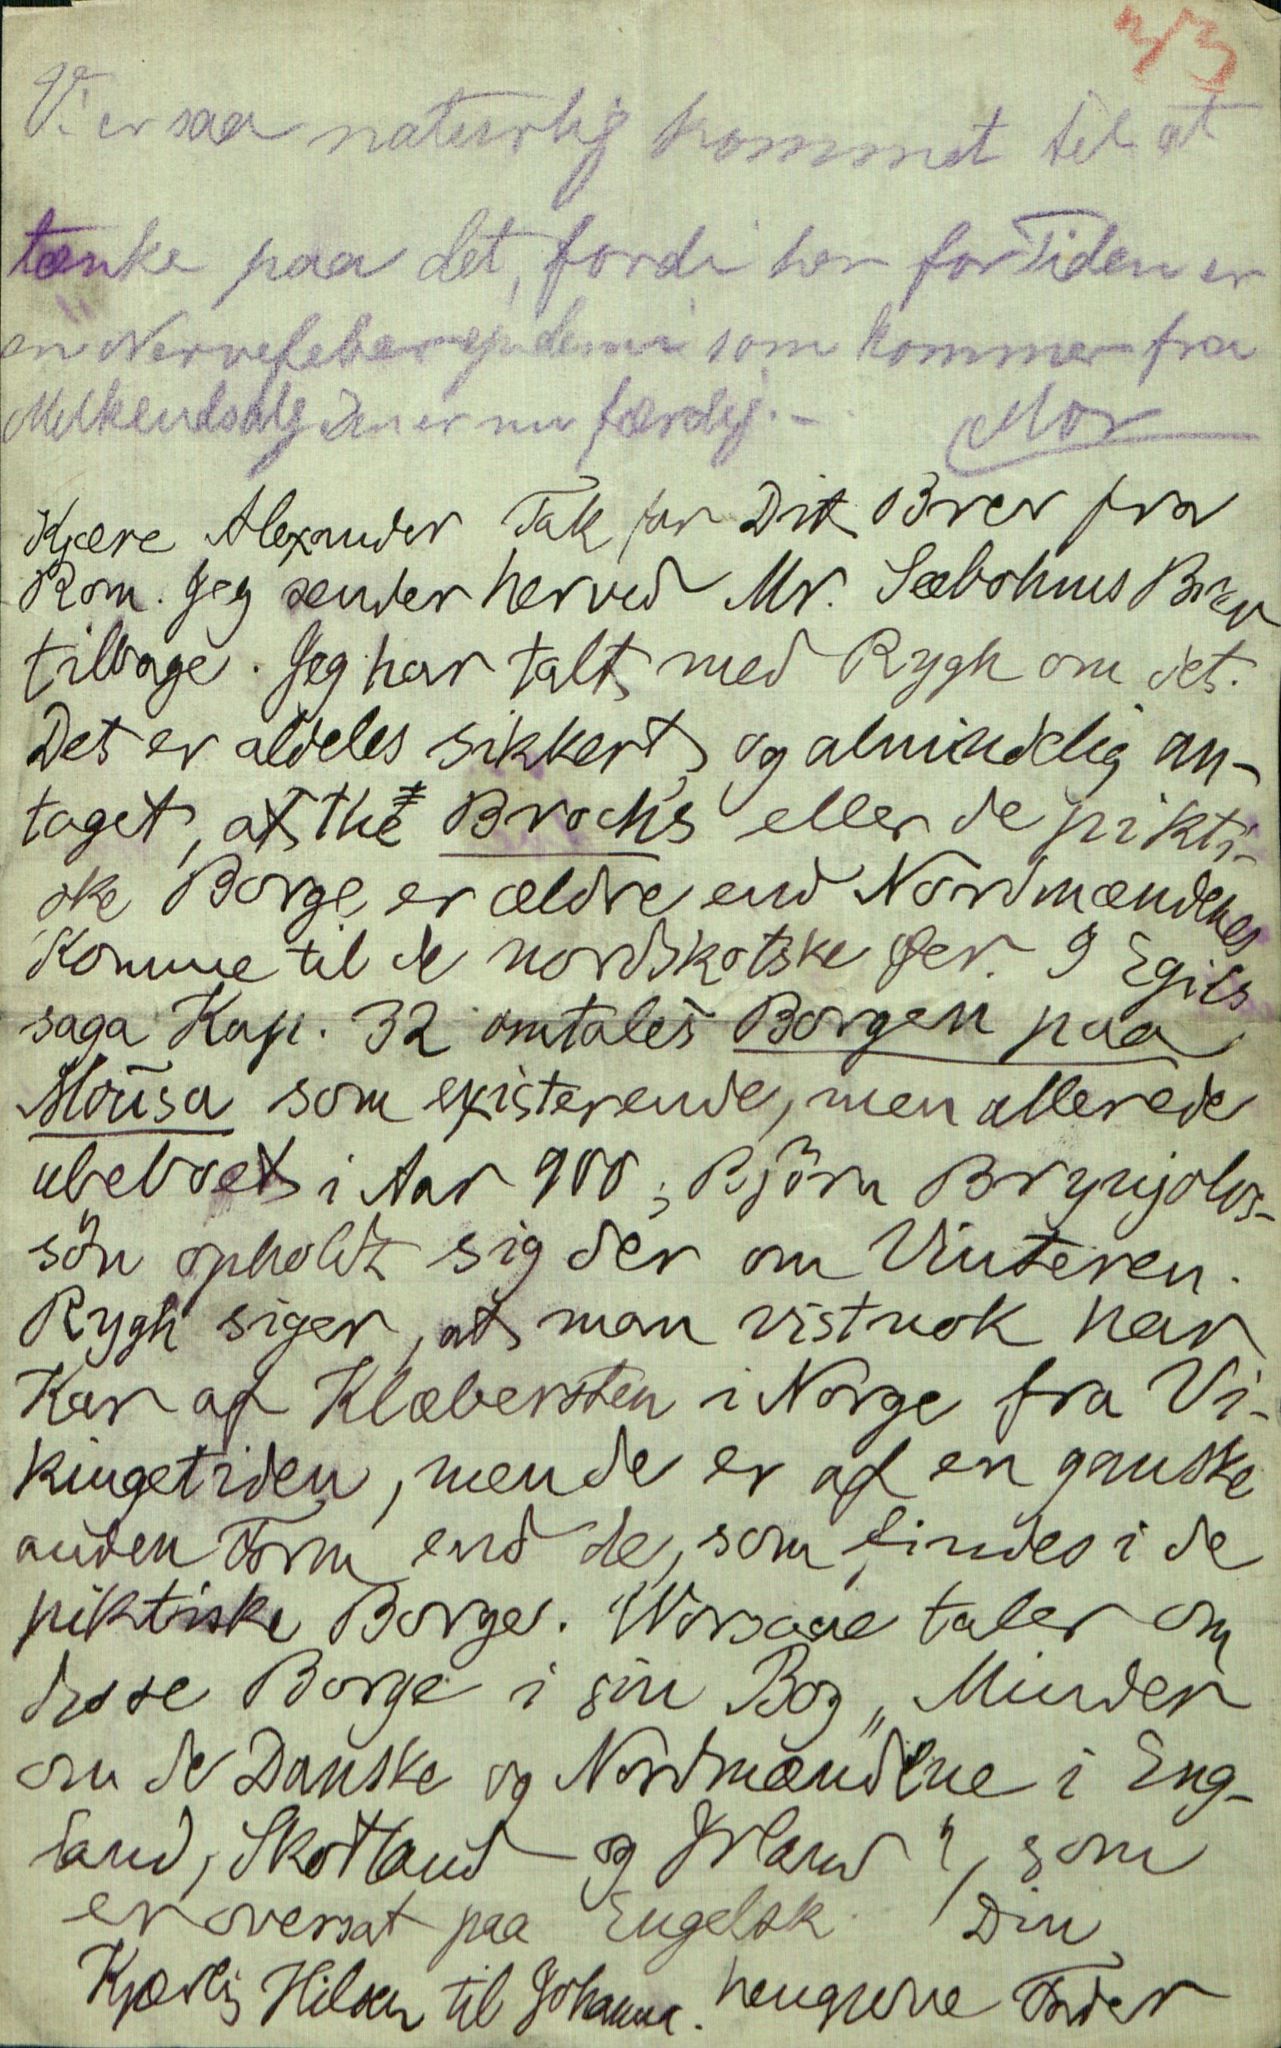 n/3
Vi er saa naturlig kommet til at
tænke paa det, fordi her for Tiden er
en Nervefeberepidemi som kommer fra
Melkeudsalg Den er nu færdig. –
Mor
Kjære Alexander Tak for Dit Brev fra
Rom. Jeg sender herved Mr. Sebohms Brev
tilbage. Jeg har talt med Rygh om det.
Det er aldeles sikkert, og almindelig an-
taget, at the Brochs eller de pikti-
ske Borge er ældre end Nordmændenes
Komme til de nordskotske Øer. I Egils
saga Kap. 32 omtales Borgen paa
Mousa som existerende, men allerede
ubeboet i Aar 900; Björn Brynjolvs-
sön opholdt sig der om Vinteren.
Rygh siger, at man vistnok har
Kar af Klæbersten i Norge fra Vi-
kingetiden, men de er af en ganske
anden Form end de, som findes i de
piktiske Borge. Worsaae taler om
disse Borge i sin Bog „Minder
om de Danske og Nordmændene i Eng-
land, Skotland og Irland", som
er oversat paa Engelsk. Din
Kjærlig Hilsen til Johanna. hengivne Fader